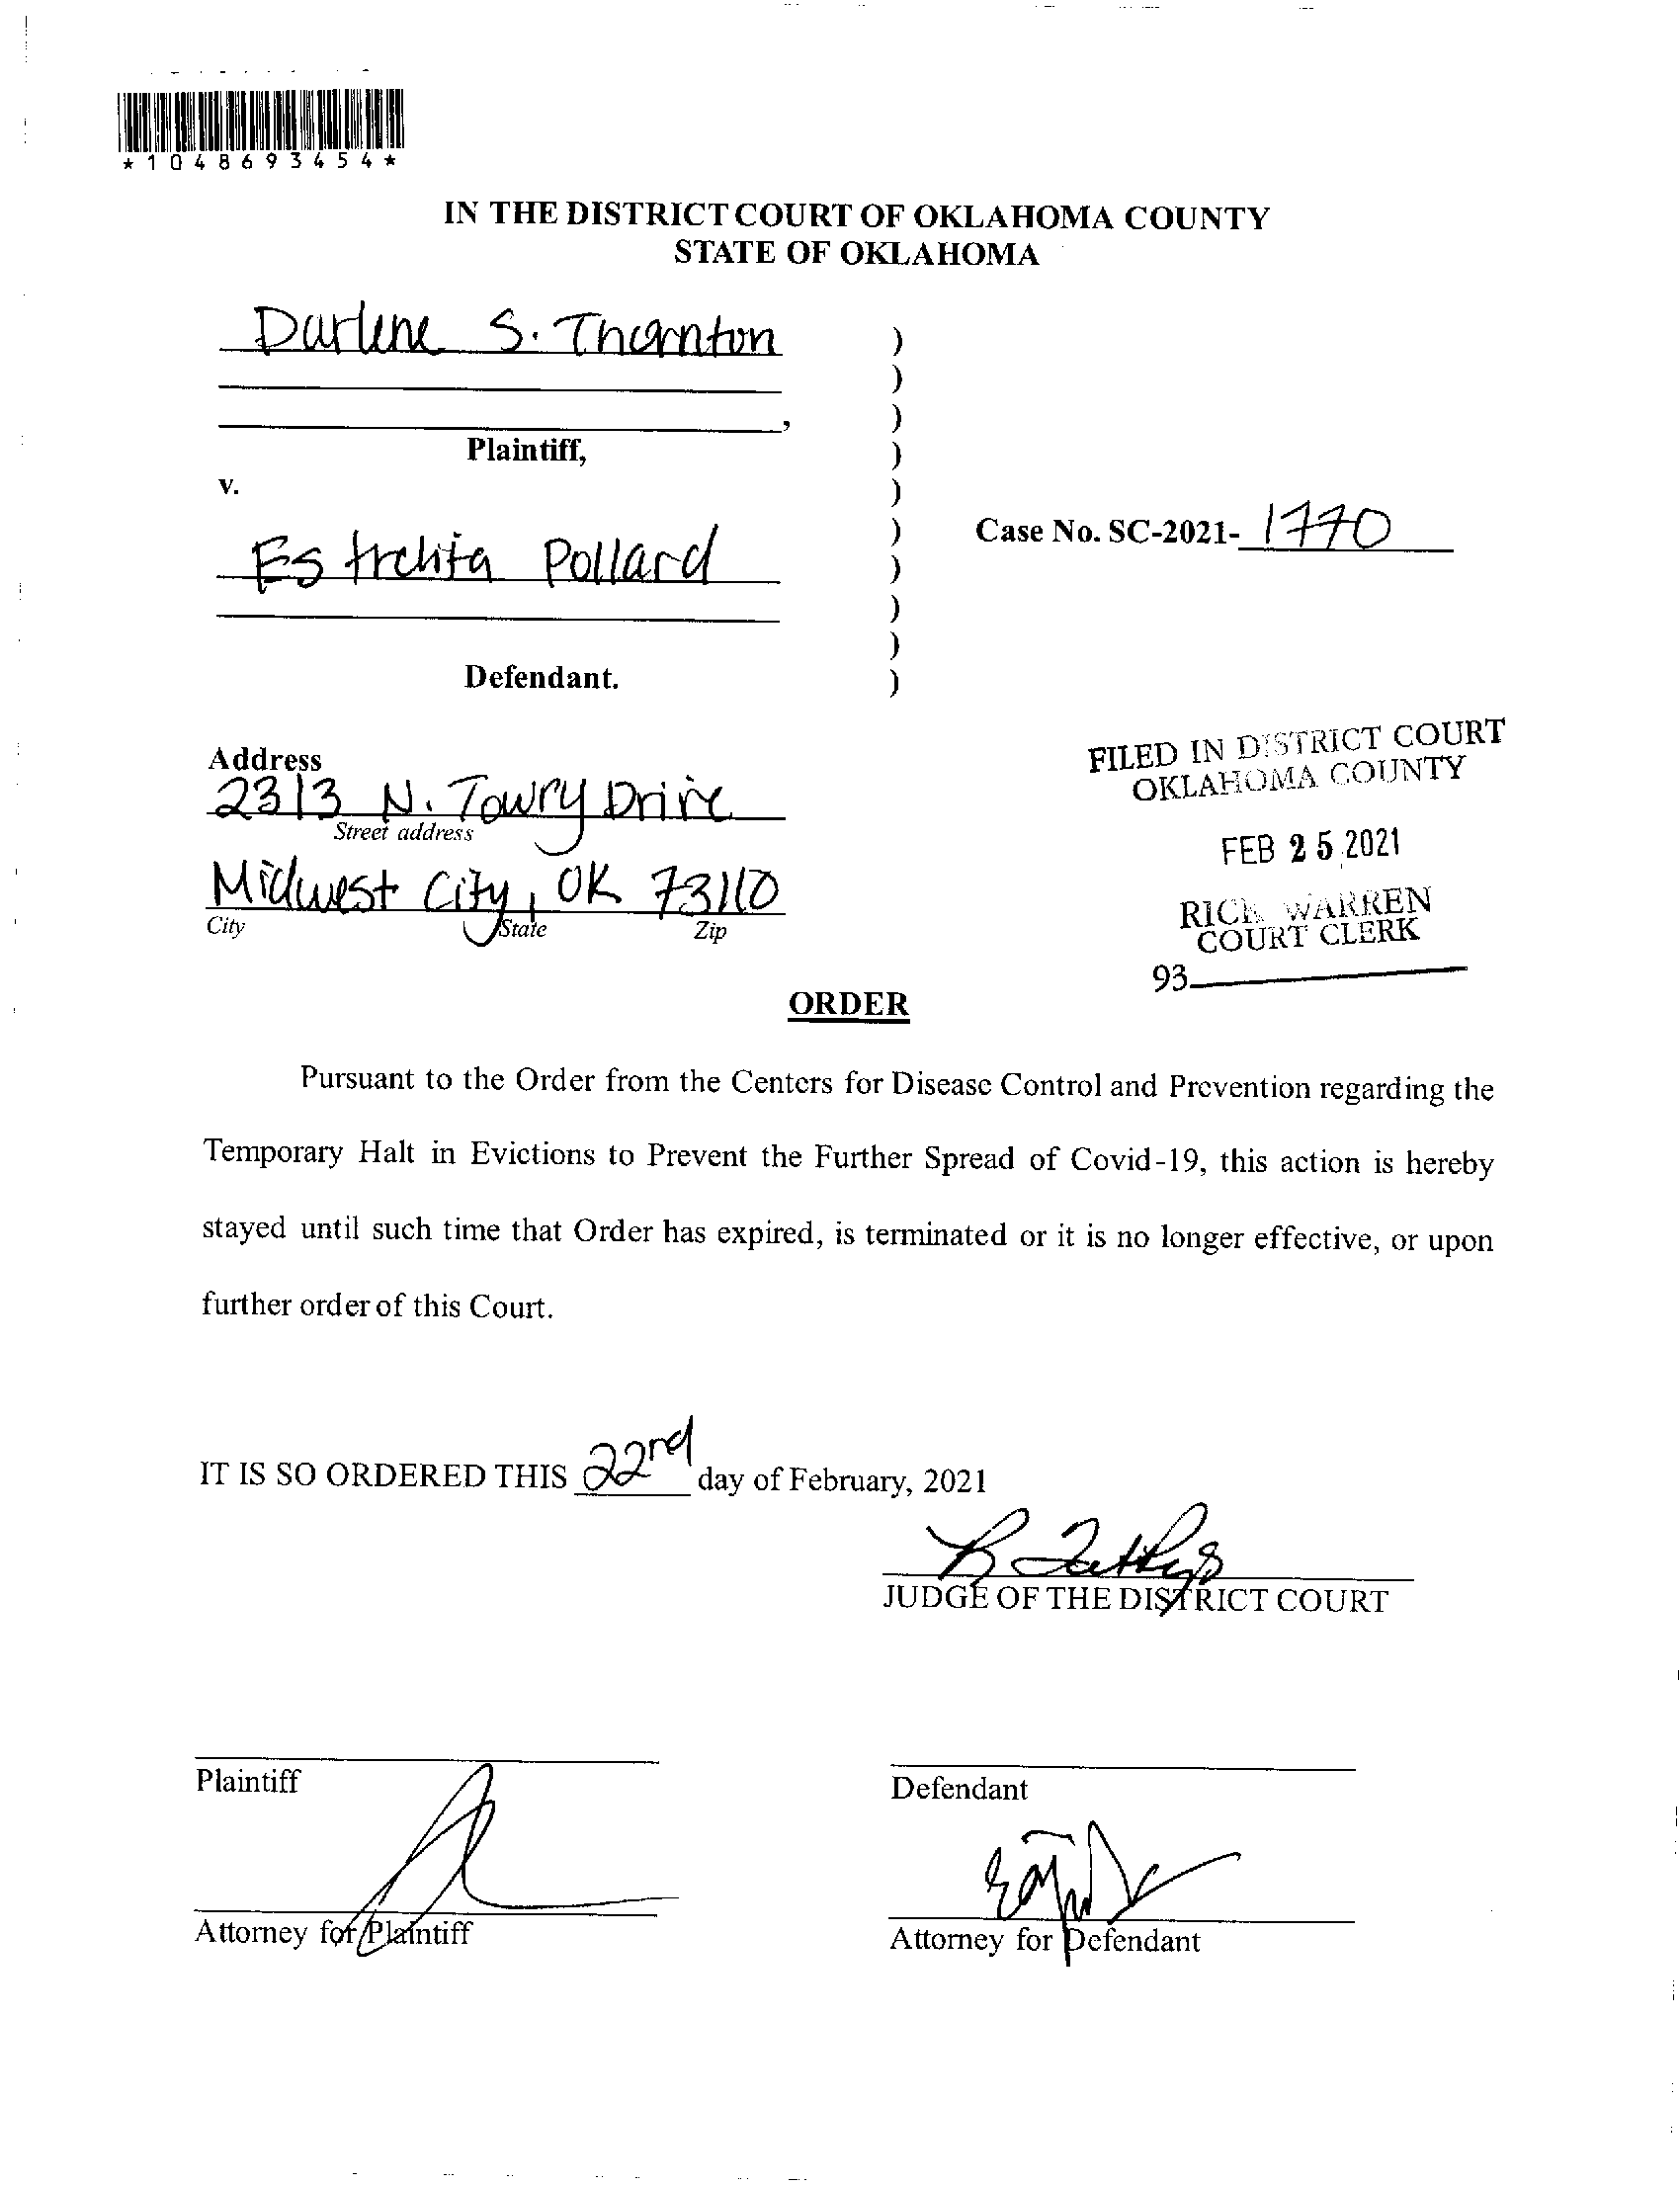 *1048693454*
IN THE DISTRICT COURT OF OKLAHOMA COUNTY
STATE OF OKLAHOMA
Darlene S. Thornton
Plaintiff,
v.
Estrelita Pollard
Defendant.
Case No. SC-2021- 1770
Address
2313 N. Towry Drive
Street address
Midwest City, OK 73110
City State Zip
FILED IN DISTRICT COURT
OKLAHOMA COUNTY
FEB 25 2021
RICK WARREN
COURT CLERK
93
ORDER
Pursuant to the Order from the Centers for Disease Control and Prevention regarding the
Temporary Halt in Evictions to Prevent the Further Spread of Covid-19, this action is hereby
stayed until such time that Order has expired, is terminated or it is no longer effective, or upon
further order of this Court.
IT IS SO ORDERED THIS 22nd day of February, 2021
JUDGE OF THE DISTRICT COURT
Plaintiff
Defendant
Attorney for Plaintiff
Attorney for Defendant